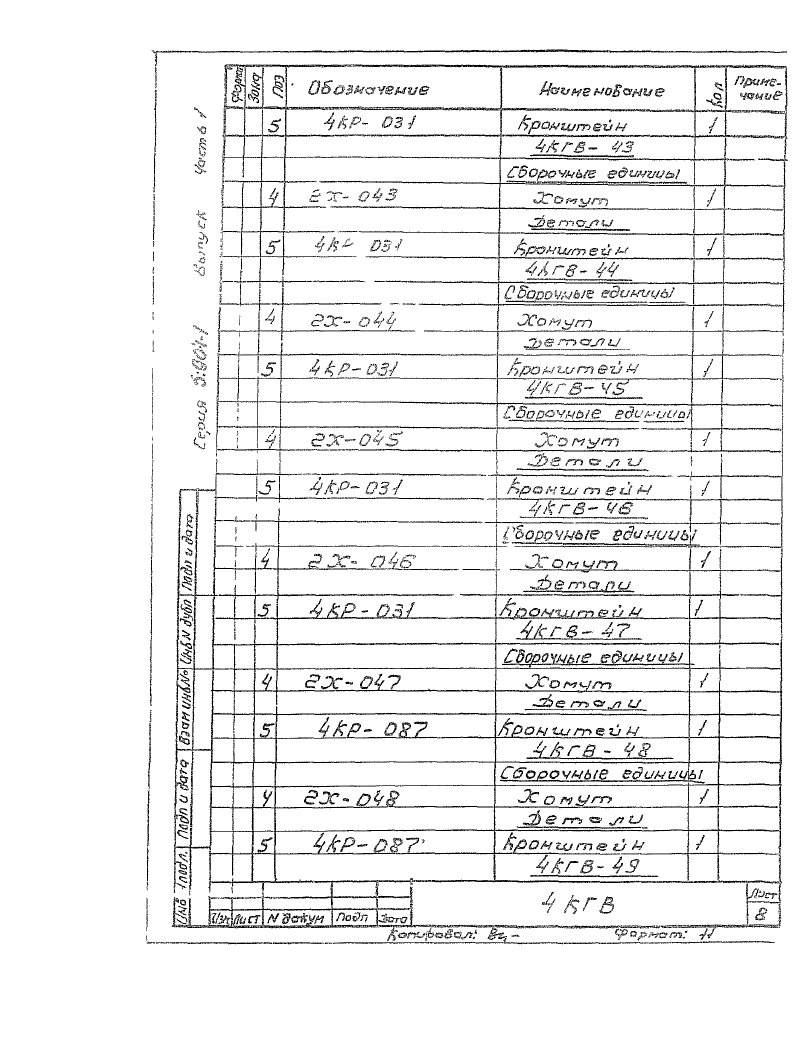 Форм Зона Поз Обозначение Наименование Кол Приме-
чание
5 4КР-031 Кронштейн 1
4КГВ-43
Сборочные единицы
4 2Х-043 Хомут 1
Детали
5 4КР 031 Кронштейн 1
4КГВ-44
Сборочные единицы
4 2Х-044 Хомут 1
Детали
5 4КР-031 Кронштейн 1
4КГВ-45
Сборочные единицы
4 2Х-045 Хомут 1
Детали
5 4КР-031 Кронштейн 1
4КГВ-46
Сборочные единицы
4 2Х-046 Хомут 1
Детали
5 4КР-031 Кронштейн 1
4КГВ-47
Сборочные единицы
4 2Х-047 Хомут 1
Детали
5 4КР-087 Кронштейн 1
4КГВ-48
Сборочные единицы
4 2Х-048 Хомут 1
Детали
5 4КР-087 Кронштейн 1
4КГВ-49
Серия 5.904-1 Выпуск Часть 1
Инв №подл. Подп и дата Взам инв.№ Инв.N дубл Подп и дата
Изм Лист N докум Подп Дата
4КГВ
Лист
8
Копировал: Формат: 11